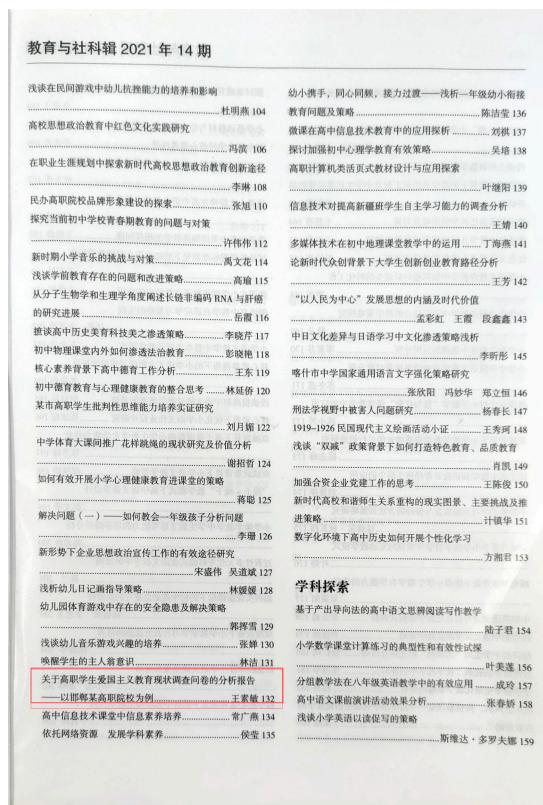 教育与社科辑 2021 年 14 期
浅谈在民间游戏中幼儿抗挫能力的培养和影响
杜明燕 104
高校思想政治教育中红色文化实践研究
冯滨 106
在职业生涯规划中探索新时代高校思想政治教育创新途径
李琳 108
民办高职院校品牌形象建设的探索 张旭 110
探究当前初中学校青春期教育的问题与对策
许伟伟 112
新时期小学音乐的挑战与对策 禹文花 114
浅谈学前教育存在的问题和改进策略 高瑜 115
从分子生物学和生理学角度阐述长链非编码 RNA 与肝癌
的研究进展 岳霞 116
摭谈高中历史美育科技美之渗透策略 李晓芹 117
初中物理课堂内外如何渗透法治教育 彭晓艳 118
核心素养背景下高中德育工作分析 王东 119
初中德育教育与心理健康教育的整合思考 林延侨 120
某市高职学生批判性思维能力培养实证研究
刘月媚 122
中学体育大课间推广花样跳绳的现状研究及价值分析
谢招哲 124
如何有效开展小学心理健康教育进课堂的策略
蒋聪 125
解决问题（一）——如何教会一年级孩子分析问题
李珊 126
新形势下企业思想政治宣传工作的有效途径研究
宋盛伟 吴道斌 127
浅析幼儿日记画指导策略 林媛媛 128
幼儿园体育游戏中存在的安全隐患及解决策略
郭挥雪 129
浅谈幼儿音乐游戏兴趣的培养 张婵 130
唤醒学生的主人翁意识 林洁 131
关于高职学生爱国主义教育现状调查问卷的分析报告
——以邯郸某高职院校为例 王素敏 132
高中信息技术课堂中信息素养培养 常广燕 134
依托网络资源 发展学科素养 侯莹 135
幼小携手，同心同频，接力过渡——浅析一年级幼小衔接
教育问题及策略 陈洁莹 136
微课在高中信息技术教育中的应用探析 刘祺 137
探讨加强初中心理学教育有效策略 吴培 138
高职计算机类活页式教材设计与应用探索
叶继阳 139
信息技术对提高新疆班学生自主学习能力的调查分析
王婧 140
多媒体技术在初中地理课堂教学中的运用 丁海燕 141
论新时代众创背景下大学生创新创业教育路径分析
王芳 142
“以人民为中心”发展思想的内涵及时代价值
孟彩虹 王霞 段鑫鑫 143
中日文化差异与日语学习中文化渗透策略浅析
李昕彤 145
喀什市中学国家通用语言文字强化策略研究
张欣阳 冯妙华 郑立恒 146
刑法学视野中被害人问题研究 杨春长 147
1919-1926 民国现代主义绘画活动小证 王秀珂 148
浅谈“双减”政策背景下如何打造特色教育、品质教育
肖凯 149
加强合资企业党建工作的思考 王陈俊 150
新时代高校和谐师生关系重构的现实图景、主要挑战及推
进策略 计镇华 151
数字化环境下高中历史如何开展个性化学习
方湘君 153
学科探索
基于产出导向法的高中语文思辨阅读写作教学
陆子君 154
小学数学课堂计算练习的典型性和有效性试探
叶美莲 156
分组教学法在八年级英语教学中的有效应用 成玲 157
高中语文课前演讲活动效果分析 张春娇 158
浅谈小学英语以读促写的策略
斯维达·多罗夫娜 159